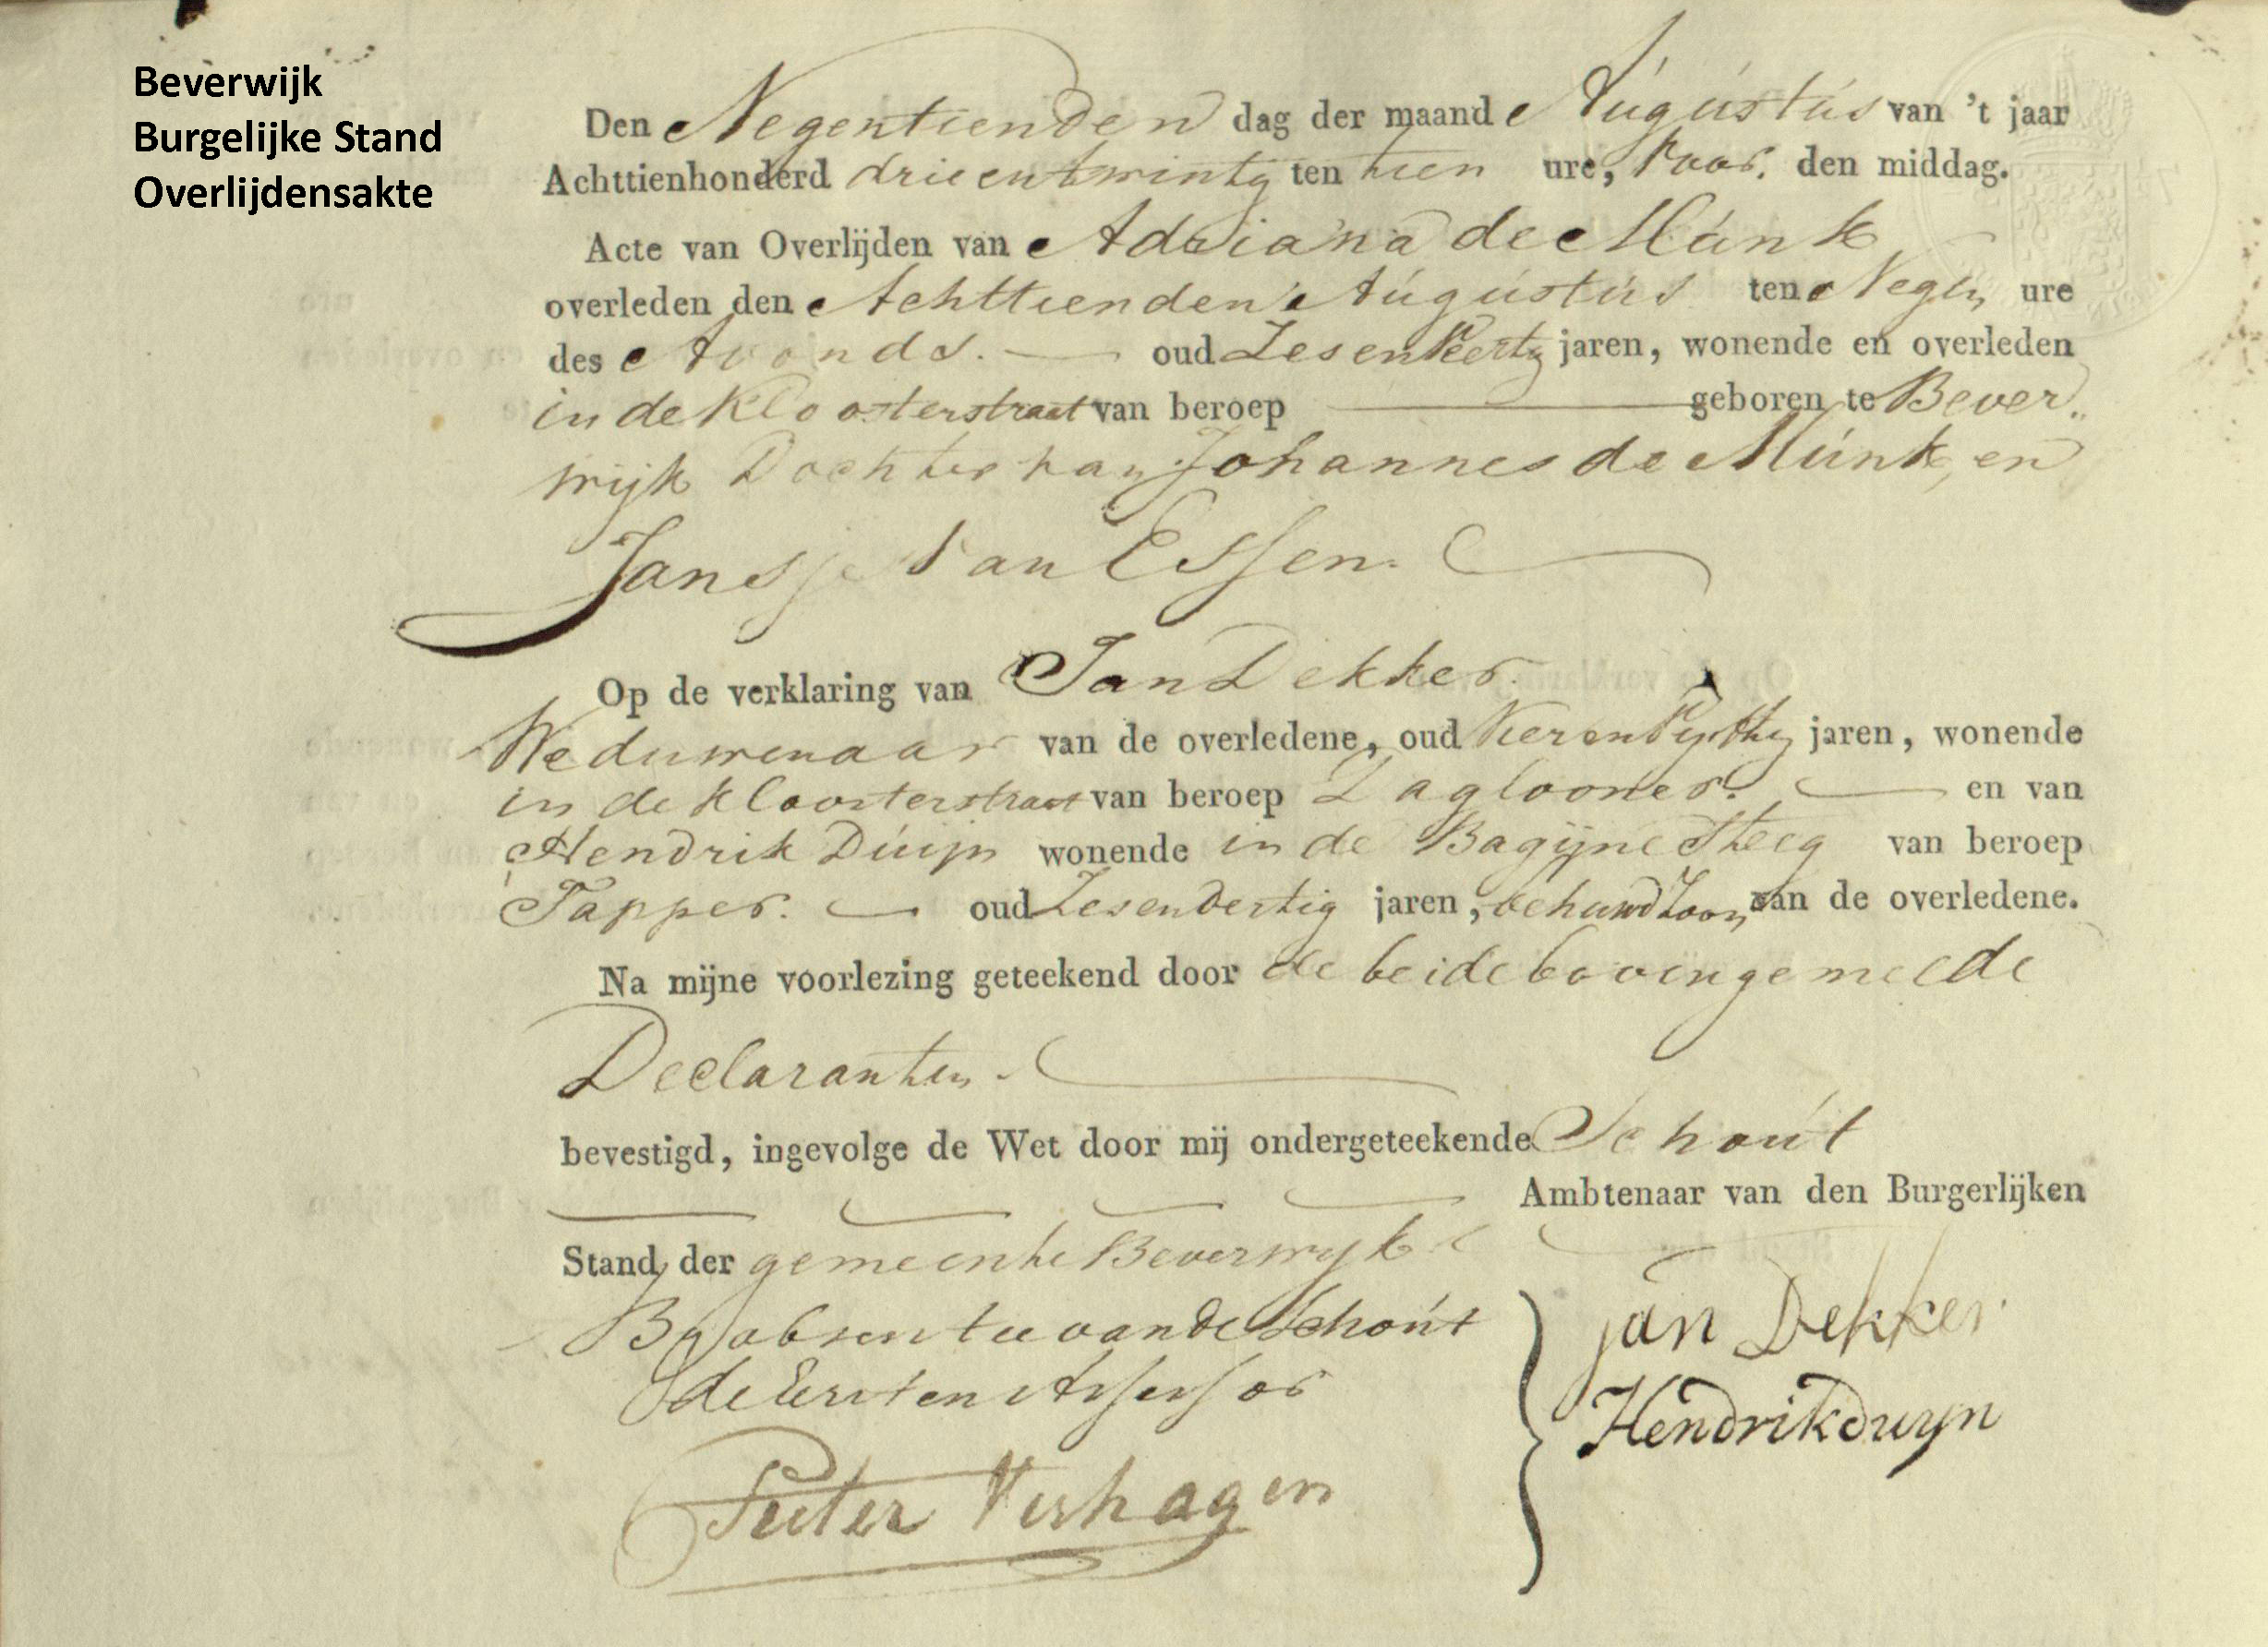 Beverwijk
Burgelijke Stand
Overlijdensakte
Den Negentienden dag der maand Augustus van 't jaar
Achttienhonderd drieentwintig ten tien ure, voor. den middag.
Acte van Overlijden van Adriana de Munk
overleden den Achttienden Augustus ten Negen ure
des Avonds. oud Zesenveertig jaren, wonende en overleden
in de Kloosterstraat van beroep geboren te Bever„
wijk Dochter van Johannes de Munk, en
Jansje van Essen.
Op de verklaring van Jan Dekker.
Weduwenaar van de overledene, oud jaren, wonende
in de Kloosterstraat van beroep Daglooner. en van
Hendrik Duijn wonende in de Bagijne Steeg van beroep
Tapper. oud Zesendertig jaren, behuwd Zoon van de overledene.
Na mijne voorlezing geteekend door de beide bovengemelde
Declaranten.
bevestigd, ingevolge de Wet door mij ondergeteekende Schout
Ambtenaar van den Burgerlijken
Stand der gemeente Beverwyk
By absentie van de Schout
de Eersten Assessor
Pieter Verhagen
jan Dekker
Hendrik duyn